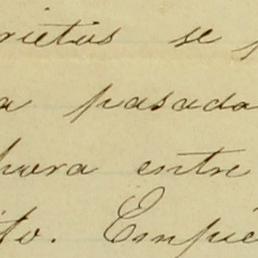 rietas se p
a pasada
hora entre
ito. Empie